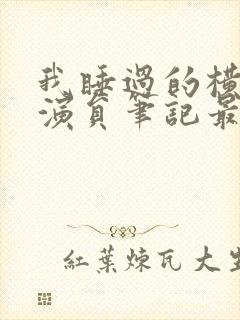 我睡過的橫
演員筆記最
紅葉煉瓦大